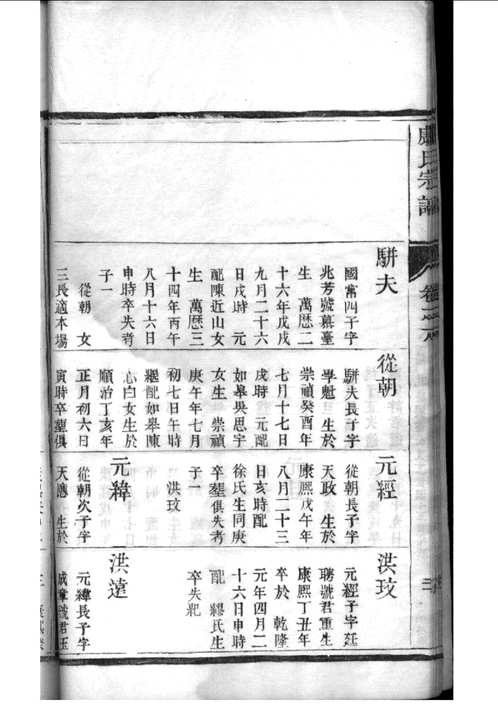 盧氏宗譜
卷之
駢夫
國常四子字
兆芳號慕臺
生萬曆二
十六年戊戌
九月二十六
日戌時元
配陳近山女
生萬曆三
十四年丙午
八月十六日
申時卒失考
子一
從朝女
三長適本場
從朝
駢夫長子字
學魁生於
崇禎癸酉年
七月十七日
戌時元配
如皋吳思宇
女生崇禎
庚午年七月
初七日午時
繼配如皋陳
心白女生於
順治丁亥年
正月初六日
寅時卒塟俱
元經
從朝長子字
天政生於
康熙戊午年
八月二十三
日亥時配
徐氏生同庚
卒塟俱失考
子一
洪玟
元緯
從朝次子字
天應生於
洪玟
元經子字廷
聘號君重生
康熙丁丑年
卒於乾隆
元年四月二
十六日申時
配繆氏生
卒失紀
洪達
元緯長子字
成章號君玉